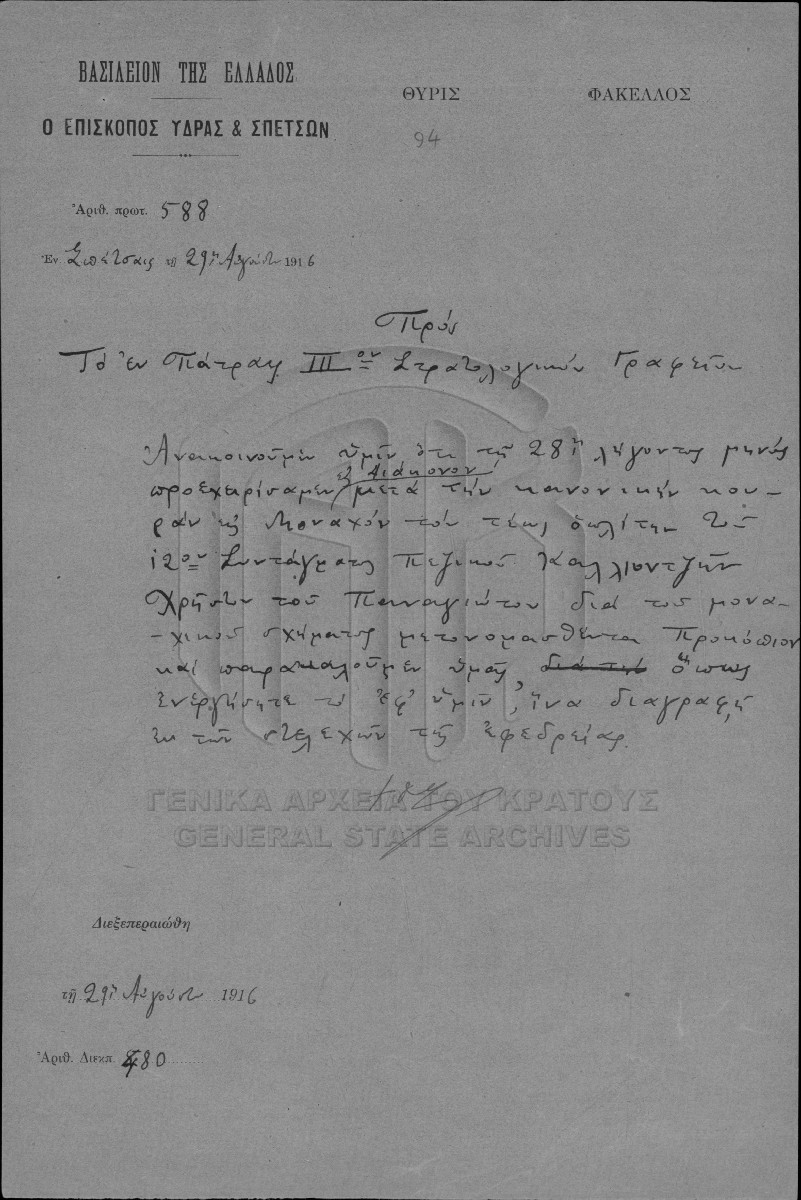 ΒΑΣΙΛΕΙΟΝ ΤΗΣ ΕΛΛΑΔΟΣ
Ο ΕΠΙΣΚΟΠΟΣ ΥΔΡΑΣ & ΣΠΕΤΣΩΝ
ΘΥΡΙΣ
ΦΑΚΕΛΛΟΣ
94
Ἀριθ. πρωτ. 588
Ἐν Σπέτσαις τῇ 29ῃ Αὐγούστου 1916
Πρὸς
Τὸ ἐν Πάτραις ΙΙΙον Στρατολογικὸν Γραφεῖον
Ἀνακοινοῦμεν ὑμῖν ὅτι τῇ 28ῃ λήγοντος μηνὸς
εἰς Διάκονον
προεχειρίσαμεν μετὰ τὴν κανονικὴν κου-
ρὰν εἰς Μοναχὸν τὸν τέως ὁπλίτην τοῦ
12ου Συντάγματος Πεζικοῦ
Χρῆστον τοῦ Παναγιώτου διὰ τοῦ μονα-
-χικοῦ σχήματος μετονομασθέντα Προκόπιον
καὶ παρακαλοῦμεν ὑμᾶς ὅπως
ἐνεργήσητε τὸ ἐφ' ὑμῖν, ἵνα διαγραφῇ
ἐκ τῶν στελεχῶν τῆς ἐφεδρείας.
ΓΕΝΙΚΑ ΑΡΧΕΙΑ ΤΟΥ ΚΡΑΤΟΥΣ
GENERAL STATE ARCHIVES
Διεξεπεραιώθη
τῇ 29ῃ Αὐγούστου 1916
Ἀριθ. Διεκπ. 480